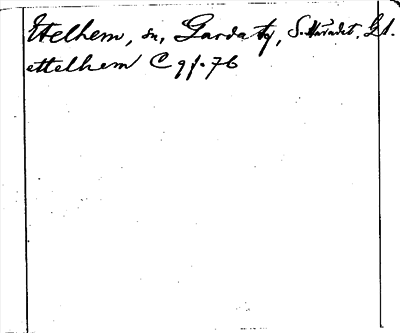 Etelhem, sn, Garda tg, S. Häradet, Gl.
ettelhem C 9 f. 76